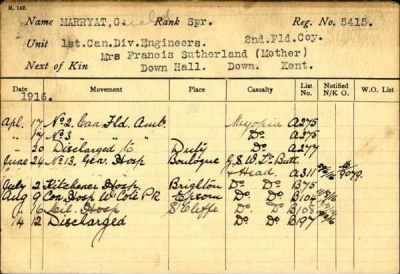 M. 149.
Name MARRYAT, Gerald Rank Spr. Reg. No. 5415.
Unit 1st.Can.Div.Engineers. 2nd.Fld.Coy.
Mrs Francis Sutherland (Mother)
Next of Kin Down Hall. Down. Kent.
Date Movement Place Casualty List No. Notified N/K O. W.O. List
1916.
Apl. 17 No 2. Can Fld. Amb. Myopia A275
" 17 No 3 " Do A275
" 20 Discharged to Duty Do A277
June 24 No 13. Gen. Hosp Boulogne G.S.W. Lt Butt.
+ Head. A311
July 2 Kitchener Hosp Brighton Do Do B75
Aug 9 Con Hosp W Cote PR Epsom Do Do B104
" 16 Mil. Hosp S'Cliffe Do. Do B108
12 Discharged Do Do B197